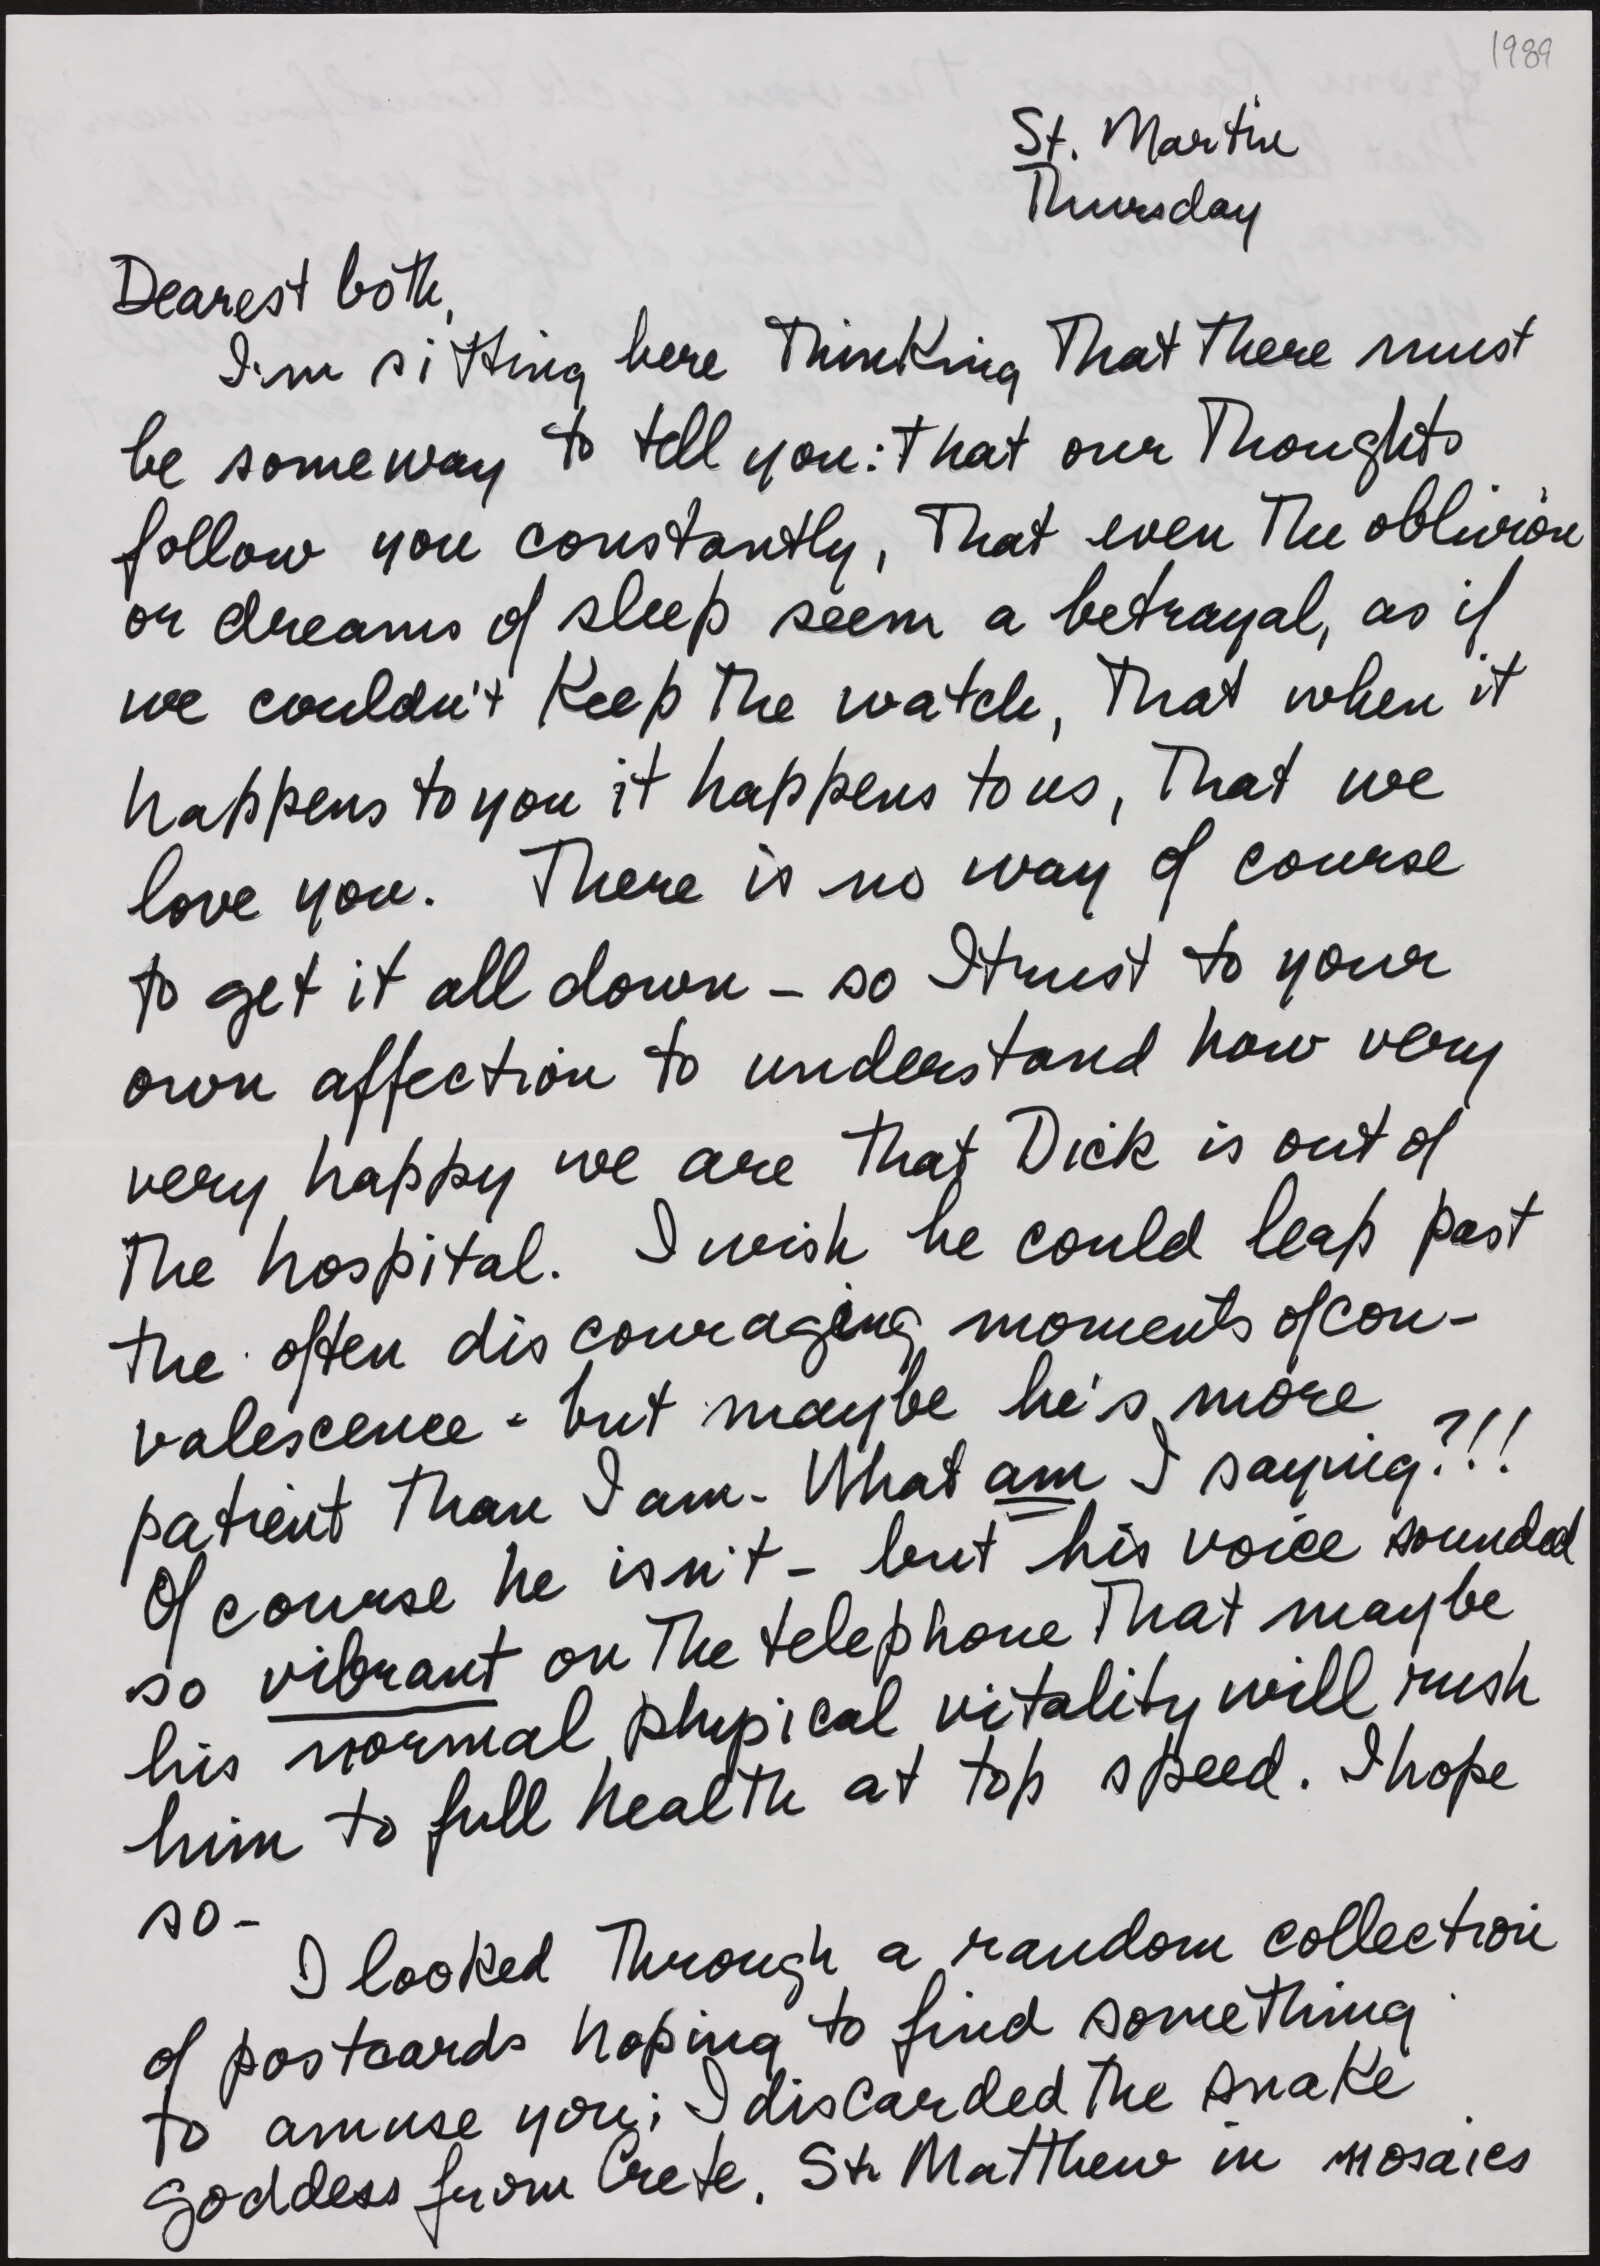 1989
St. Martin
Thursday
Dearest both,
I'm sitting here thinking that there must
be someway to tell you: that our thoughts
follow you constantly, that even the oblivion
or dreams of sleep seem a betrayal, as if
we couldn't keep the watch, that when it
happens to you it happens to us, that we
love you. There is no way of course
to get it all down - so I trust to your
own affection to understand how very
very happy we are that Dick is out of
the hospital. I wish he could leap past
the often discouraging moments of con-
valescence - but maybe he's more
patient than I am - What am I saying?!!
Of course he isn't - but his voice sounded
so vibrant on the telephone that maybe
his normal physical vitality will rush
him to full health at top speed. I hope
so -
I looked through a random collection
of postcards hoping to find something
to amuse you; I discarded the snake
goddess from Crete, St. Matthew in mosaics